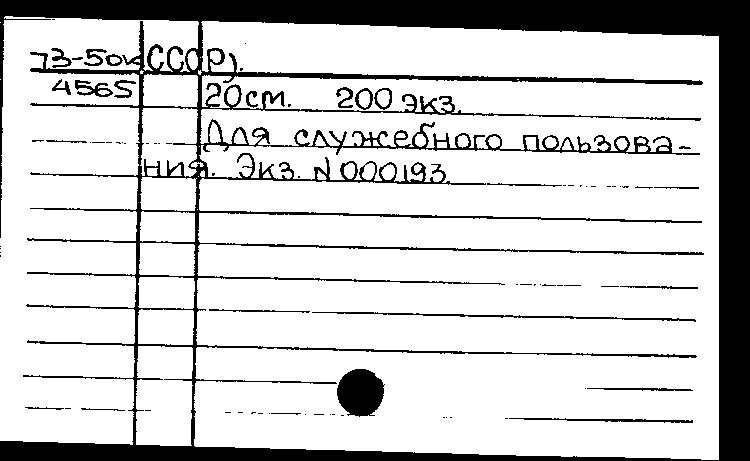 73-50к СССР).
4565 20см. 200 экз.
Для служебного пользова-
ния. Экз. N 000193.